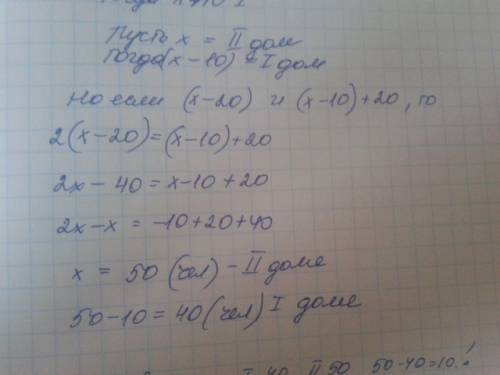 Пусть x = II дом
Тогда (x – 10) – I дом
Но если (x–20) и (x–10)+20, то
2(x–20)=(x–10)+20
2x – 40 = x–10 +20
2x – x = –10+20+40
x = 50 (чел) – II доме
50–10 = 40 (чел) I доме
I 40 II 50 50–40=10.!